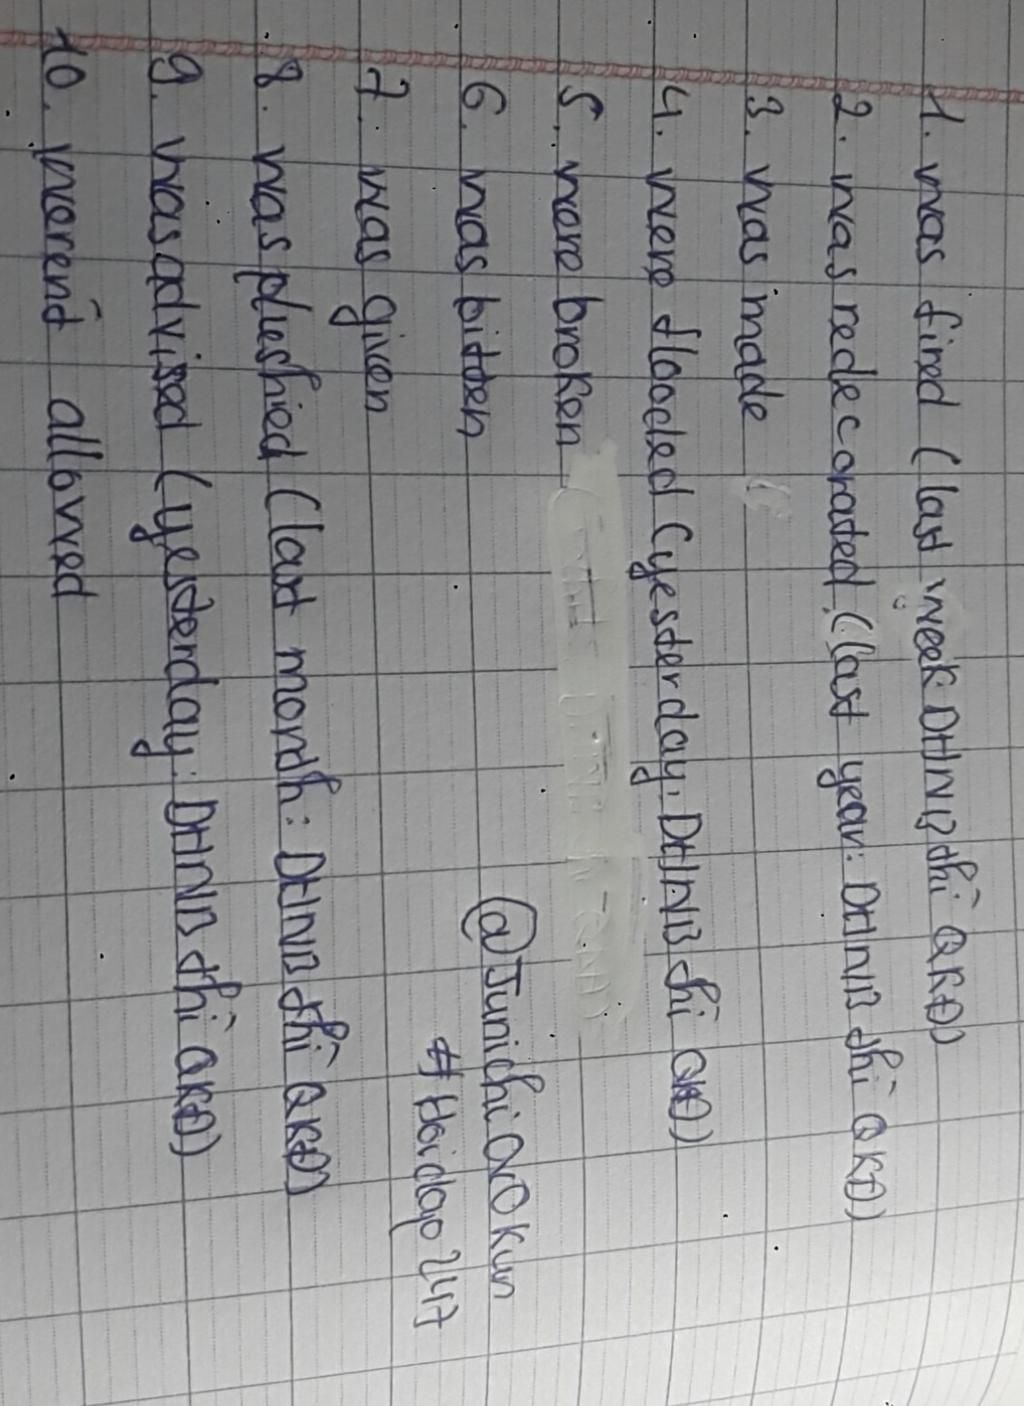 1. was fired (last week: DHNB thì QKĐ)
2. was redecorated (last year: DHNB thì QKĐ)
3. was made
4. were flooded (yesterday: DHNB thì QKĐ)
5. were broken
6. was bitten
7. was given
8. was pleshied (last month: DHNB thì QKĐ)
9. was advised (yesterday: DHNB thì QKĐ)
10. weren't allowed
@Junichi
#Hoidap247